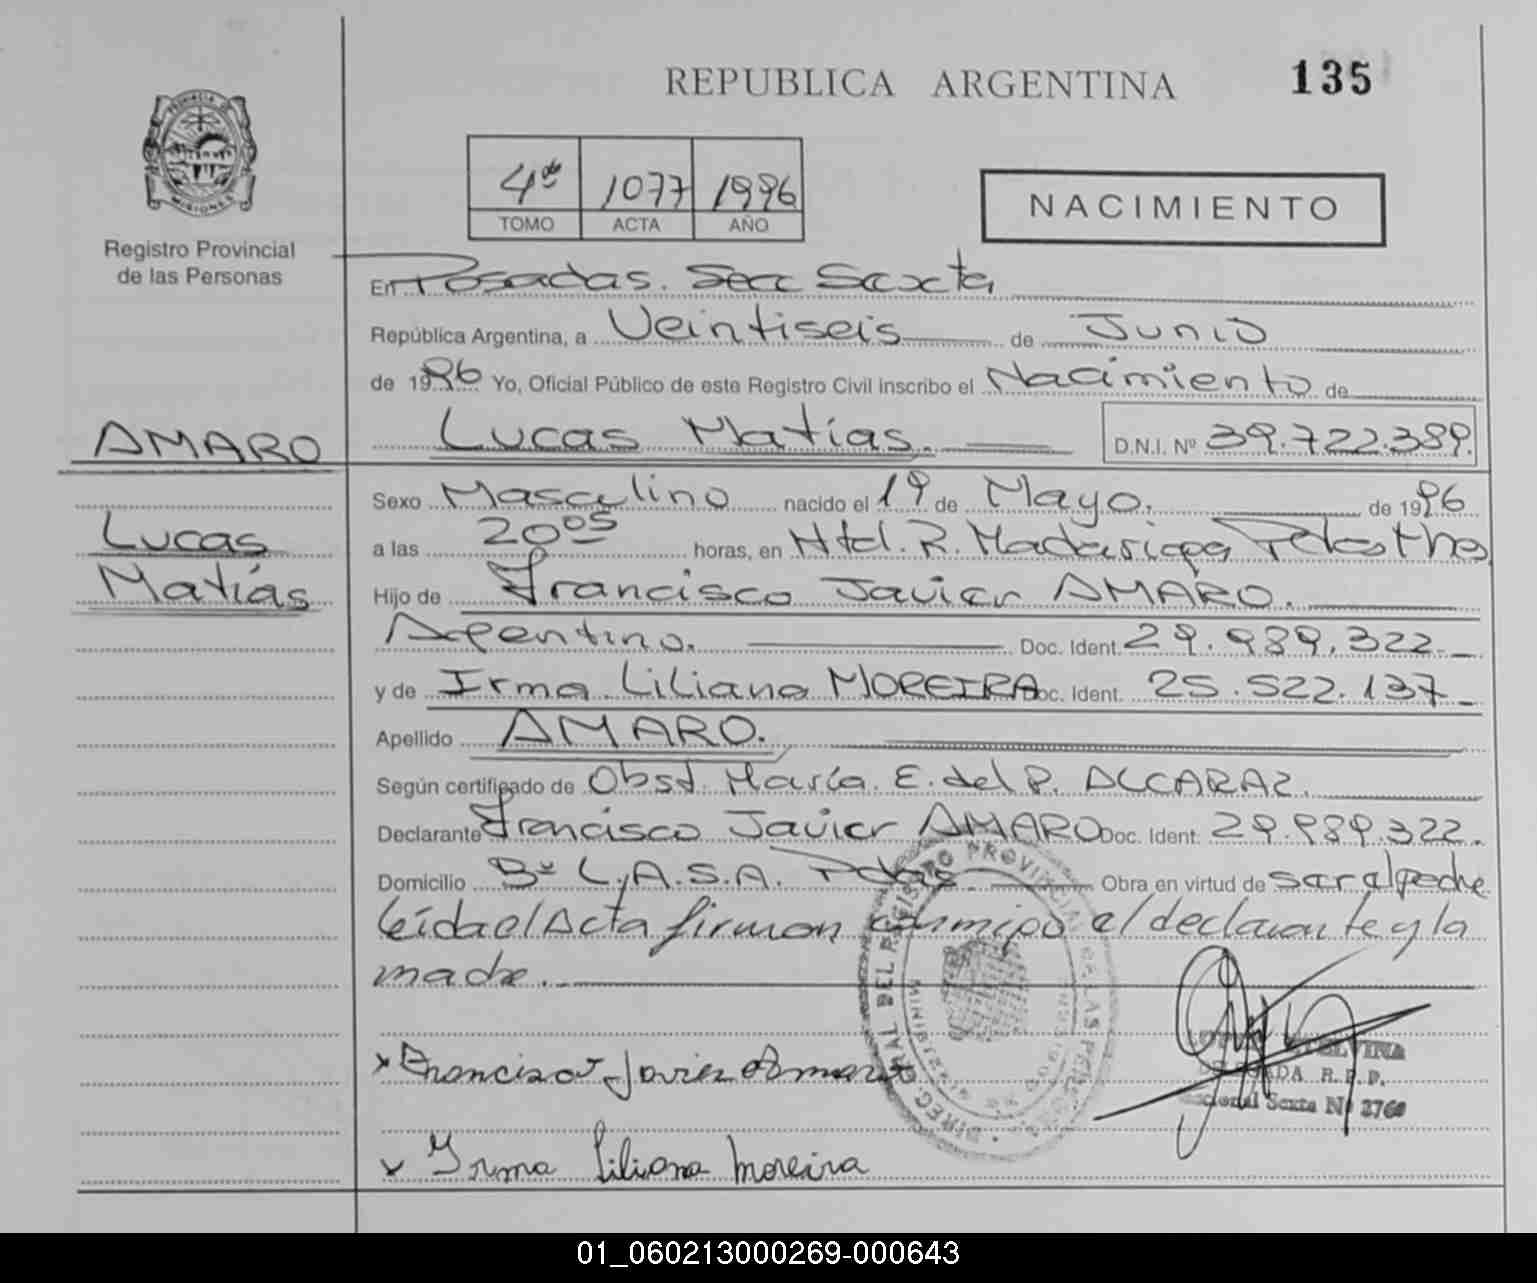 REPUBLICA ARGENTINA
135
PROVINCIA DE
MISIONES
Registro Provincial
de las Personas
4to 1077 1996
TOMO ACTA AÑO
NACIMIENTO
En Posadas. Secc Sexta
República Argentina, a Veintiseis de Junio
de 1996 Yo, Oficial Público de este Registro Civil inscribo el Nacimiento de
AMARO
Lucas Matías. D.N.I. Nº 39.722.389.
Lucas
Matías
Sexo Masculino nacido el 19 de Mayo. de 1996
a las 20 05 horas, en Htal. R. Madariaga
Hijo de Francisco Javier AMARO.
Argentino. Doc. Ident. 29.989.322
y de Irma Liliana MOREIRA Doc. Ident. 25.522.137
Apellido AMARO.
Según certificado de Obst. María. E. del P. ALCARAZ.
Declarante Francisco Javier AMARO Doc. Ident. 29.989.322.
Domicilio Bº L.A.S.A. Pdas. Obra en virtud de ser el padre
leída el Acta firman conmigo el declarante y la
madre.
DIREC. GRAL DEL REGISTRO PROVINCIAL DE LAS PERSONAS
Francisco Javier Amaro
R.P.P.
Sexta Nº 2760
Irma Liliana Moreira
01_060213000269-000643